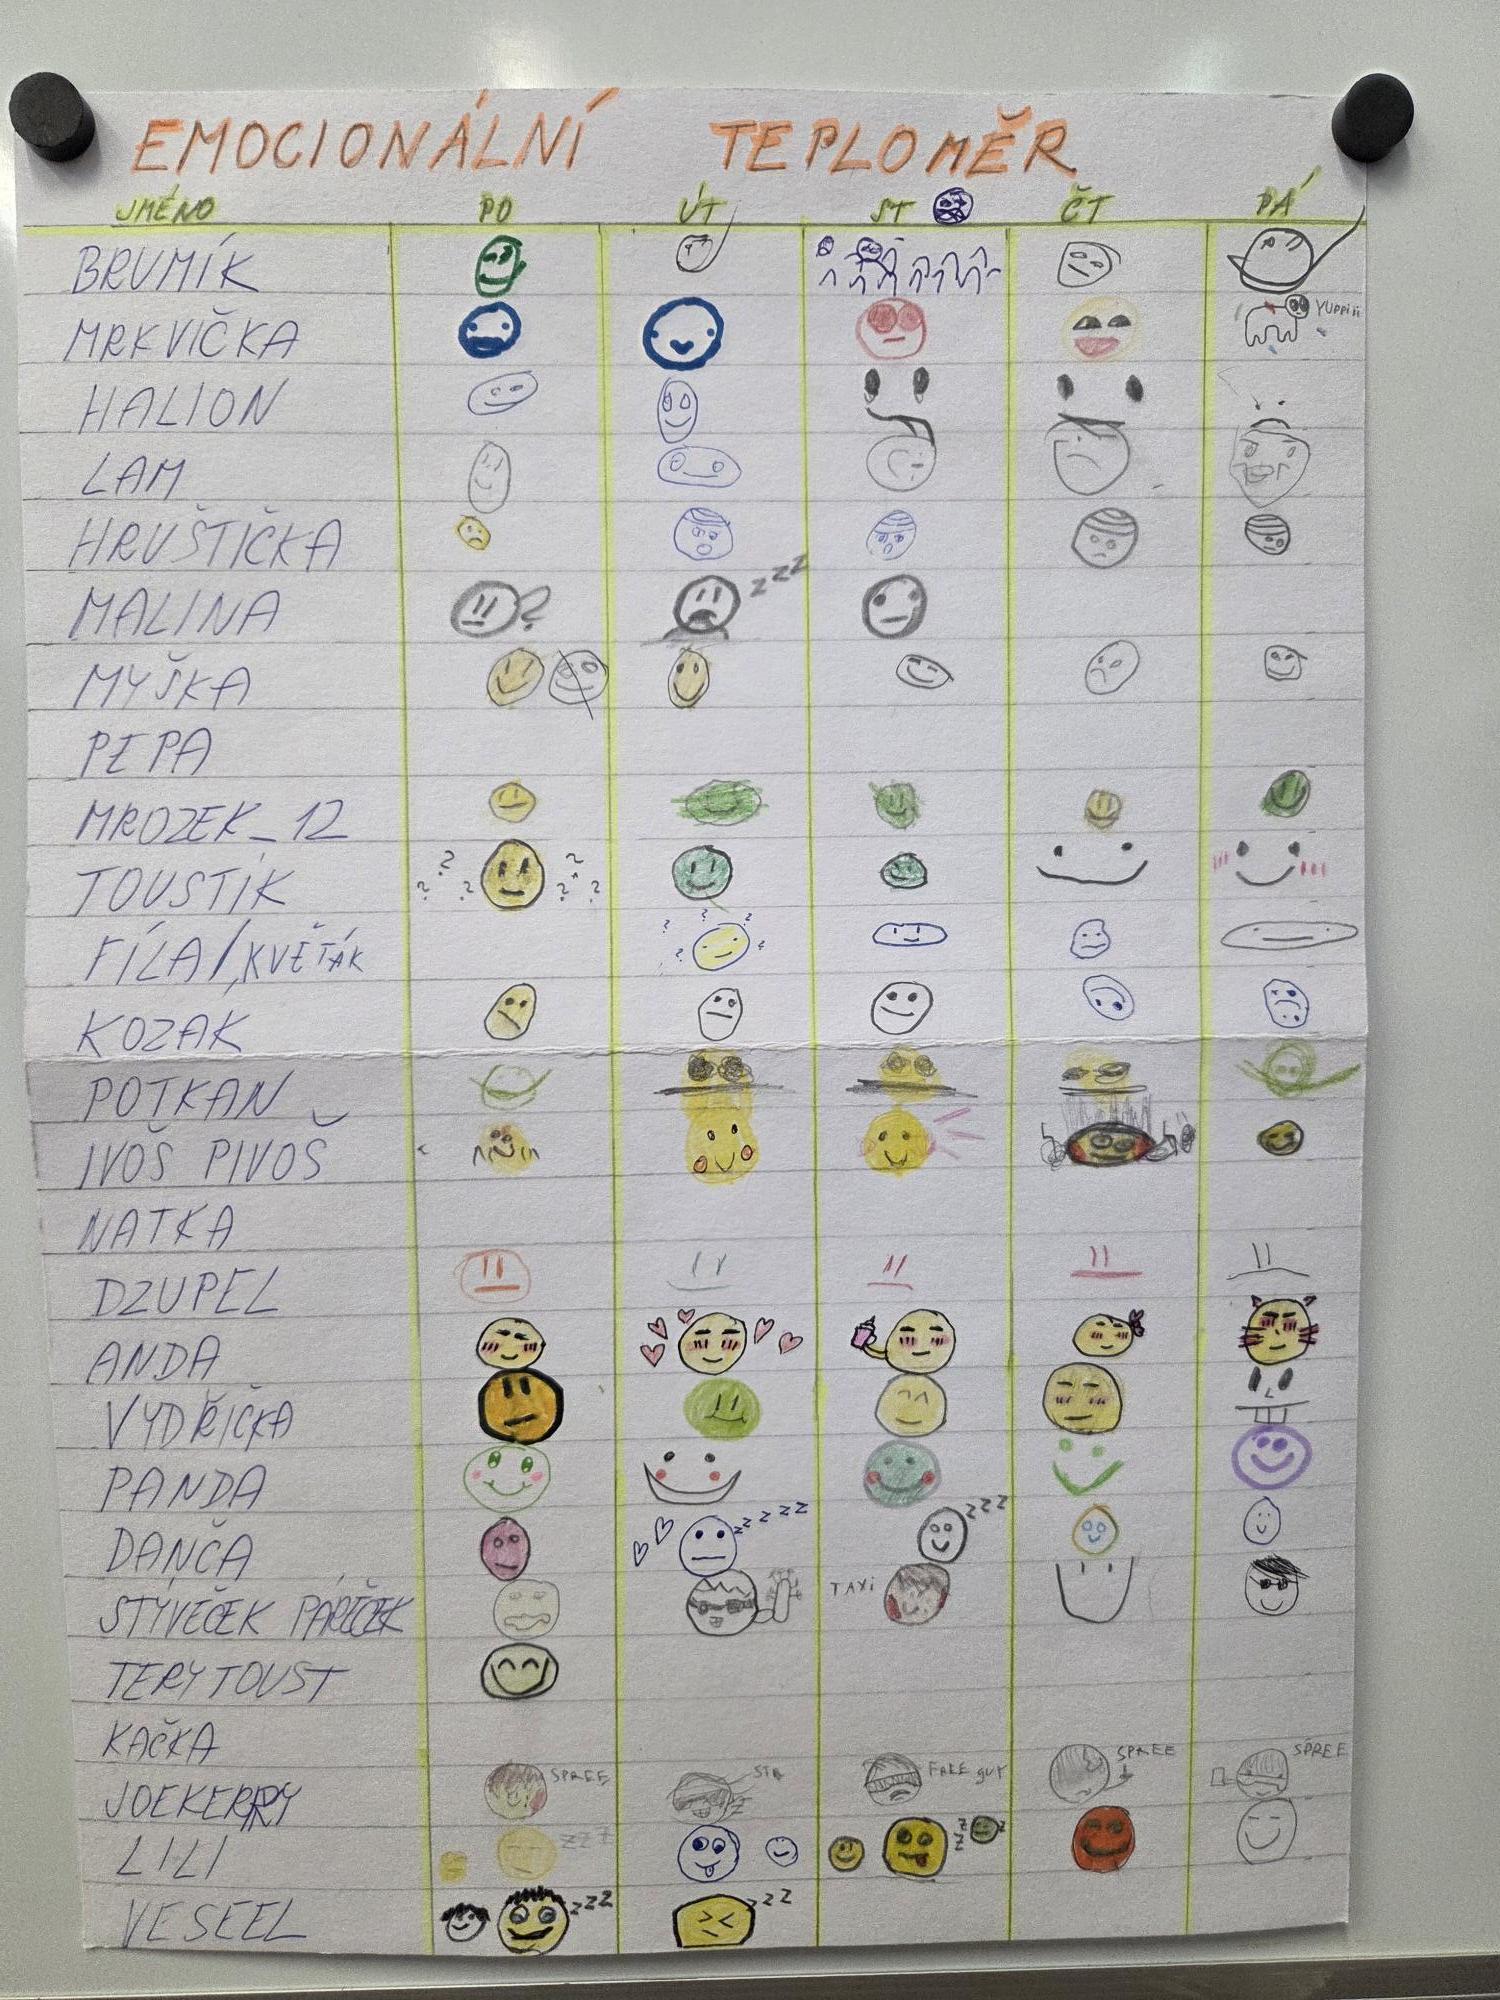 EMOCIONÁLNÍ TEPLOMĚR
JMÉNO PO ÚT ST ČT PÁ
BRUMÍK
MRKVIČKA YUPPIII
HALION
LAM
HRUŠTIČKA
MALINA ? ZZZ
MYŠKA
PEPA
MROZEK_12
TOUSTÍK ? ? ? ? ? ?
FÍLA/KVĚŤÁK ? ? ? ? ?
KOZAK
POTKAN
IVOŠ PIVOŠ
NATKA
DZUPEL
ANDA
VYDŘIČKA
PANDA
DANČA ZZZZZ ZZZ
STÝVEČEK PÁREČEK TAXI
TERY TOUST
KAČKA
JOEKERRY SPREE FAKE GUY SPREE SPREE
LILI ZZZ ZZZ
VESEEL ZZZ ZZZ